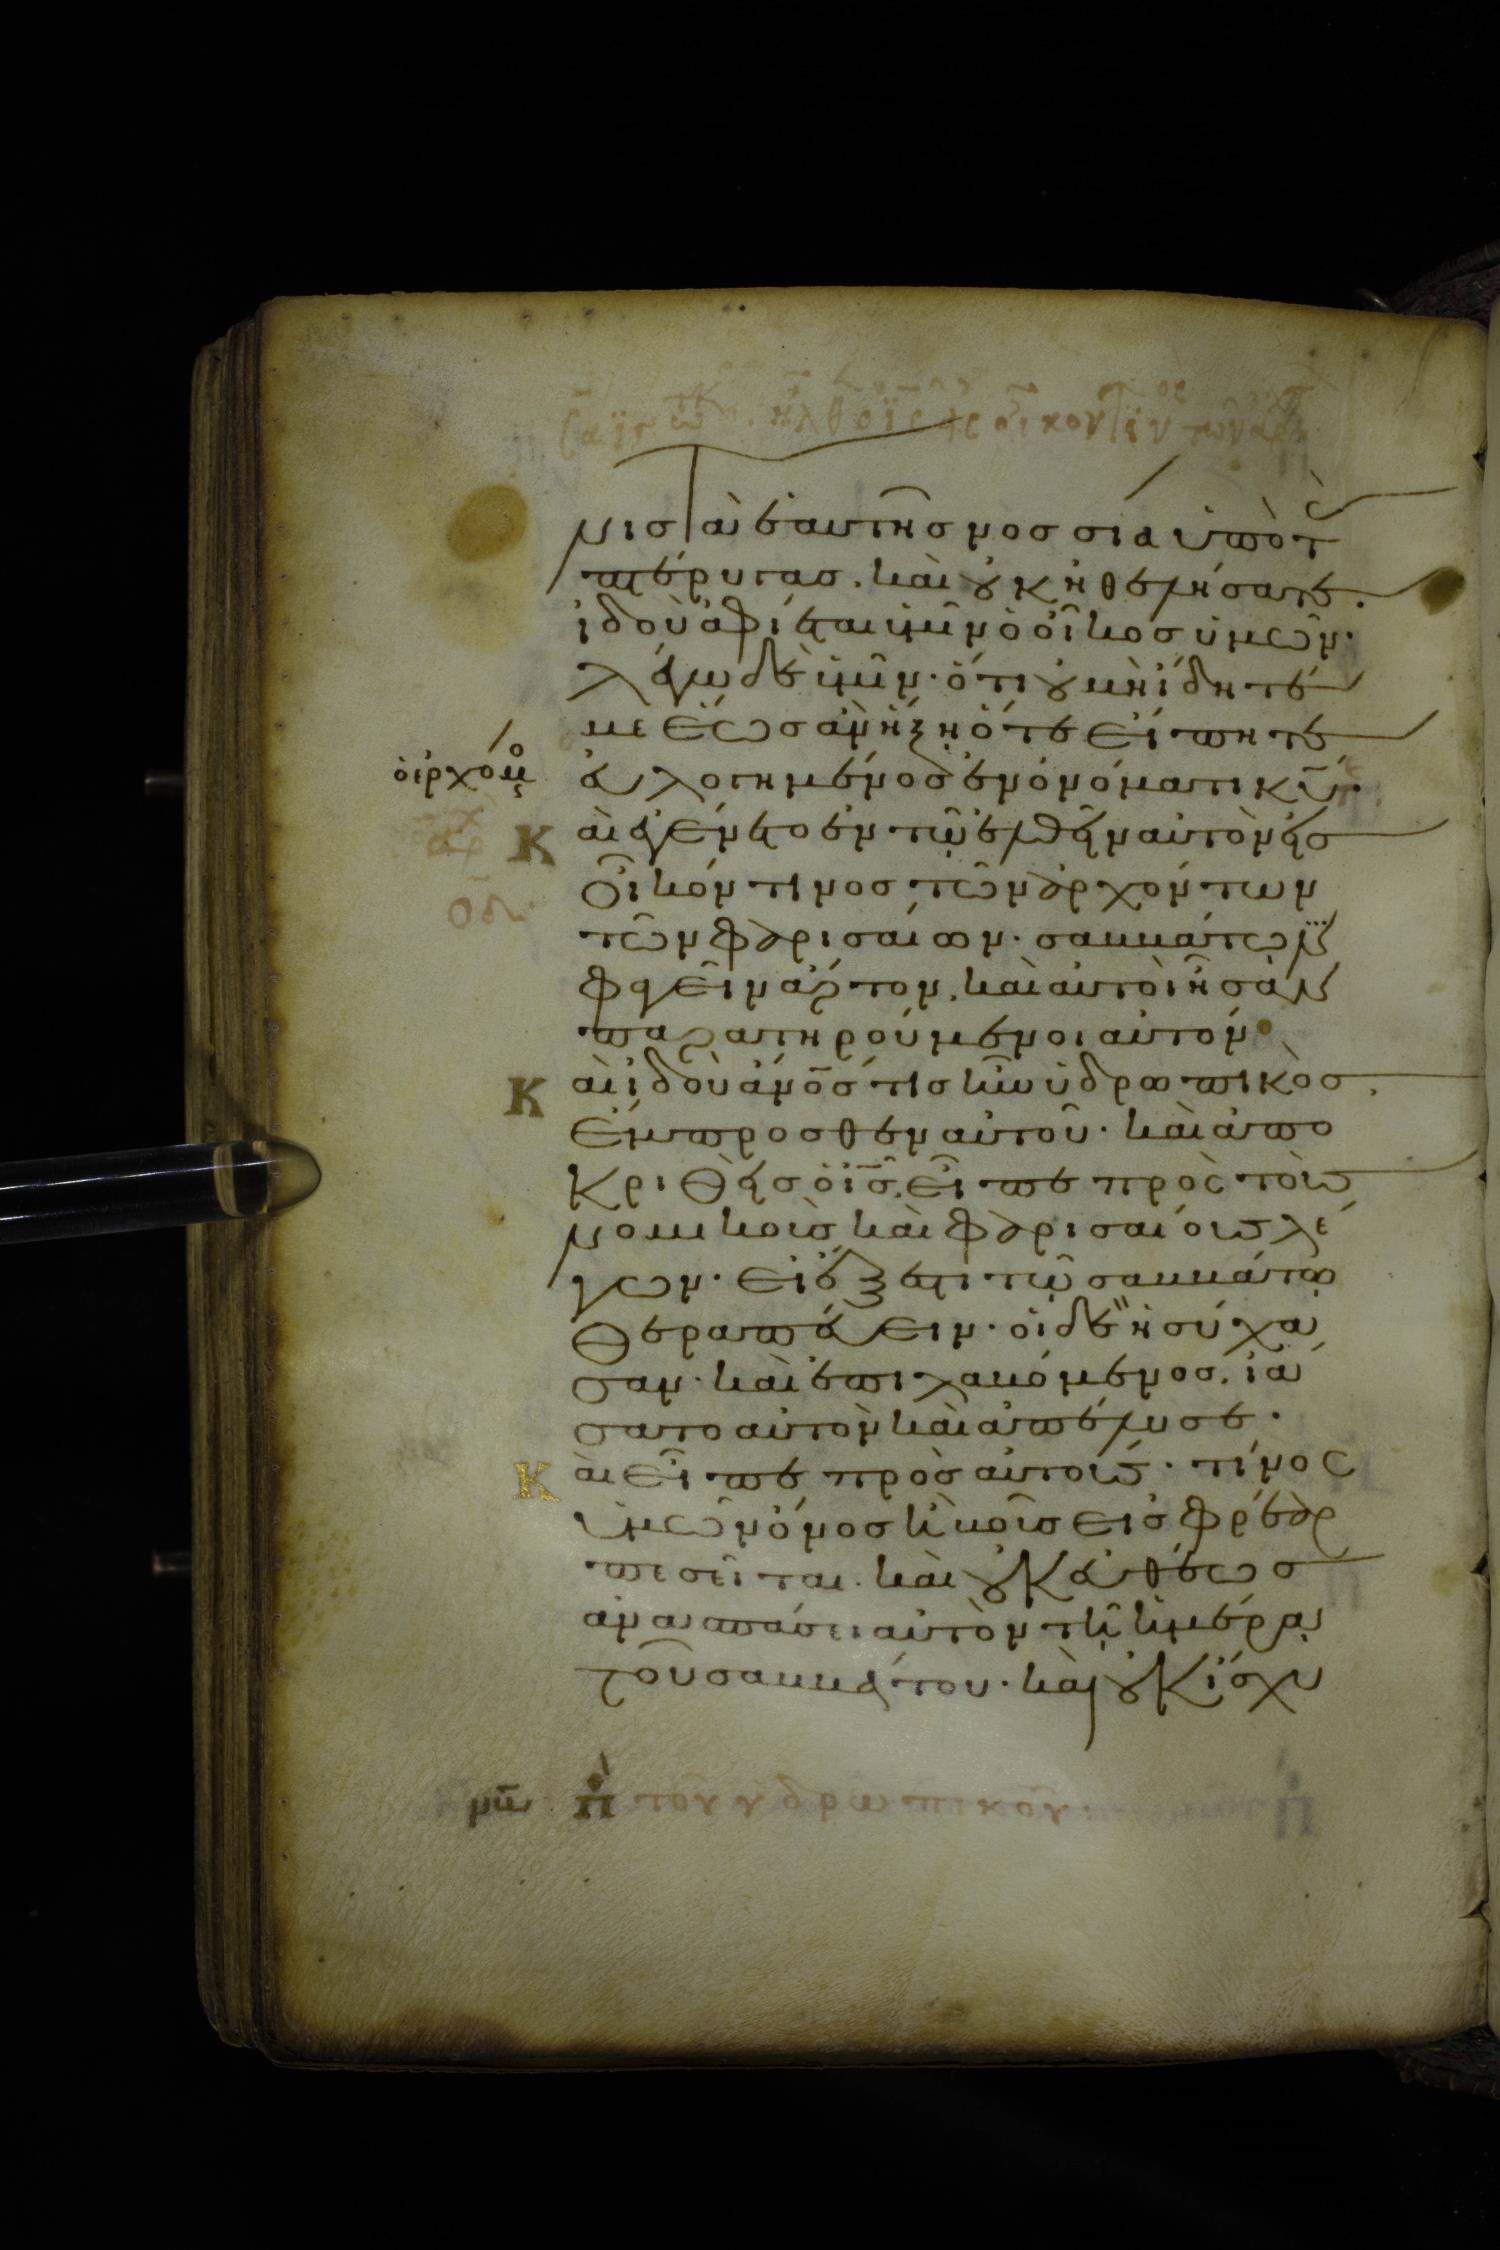 νισ τὰ ἑαυτῆσ νοσσιὰ ὑπὸ τ
πτέρυγασ. καὶ οὐκ ἠθελήσατε.
ἰδοὺ ἀφίεται ὑμῖν ὁ οἶκοσ ὑμῶν·
λέγω δὲ ὑμῖν· ὅτι οὐ μὴ ἴδητέ
με ἕωσ ἂν ἥξῃ ὅτε εἴπητε
εὐλογημένοσ ἐν ὀνόματι κ̅υ̅·
ὁ ἐρχομ
Κ αὶ ἐγένετο ἐν τῷ ἐλθεῖν αὐτὸν εἰσ
οἶκόν τινοσ τῶν ἀρχόντων
τῶν φαρισαίων· σαββάτω
φαγεῖν ἄρτον. καὶ αὐτοὶ ἦσαν
παρατηρούμενοι αὐτόν
Κ αὶ ἰδοὺ ἄν̅ο̅σ̅ τισ ἦν ὑδρωπικὸσ
ἔμπροσθεν αὐτοῦ· καὶ ἀπο
κριθεὶσ ὁ ι̅σ̅. εἶπε πρὸς τοὺσ
νομικοὺσ καὶ φαρισαίουσ λέ
γων· εἰ ἔξεστι τῷ σαββάτῳ
θεραπεύειν· οἱ δὲ ἡσύχα
σαν· καὶ ἐπιλαβόμενοσ. ἰά
σατο αὐτὸν καὶ ἀπέλυσε·
Κ αὶ εἶπε πρὸσ αὐτούσ· τίνος
ὑμῶν ὄνοσ ἢ βοῦσ εἰσ φρέαρ
πεσεῖται. καὶ οὐκ εὐθέωσ
ἀνασπάσει αὐτὸν τῇ ἡμέρᾳ
τοῦ σαββάτου· καὶ οὐκ ἴσχυ
τοῦ ὑδρωπικοῦ